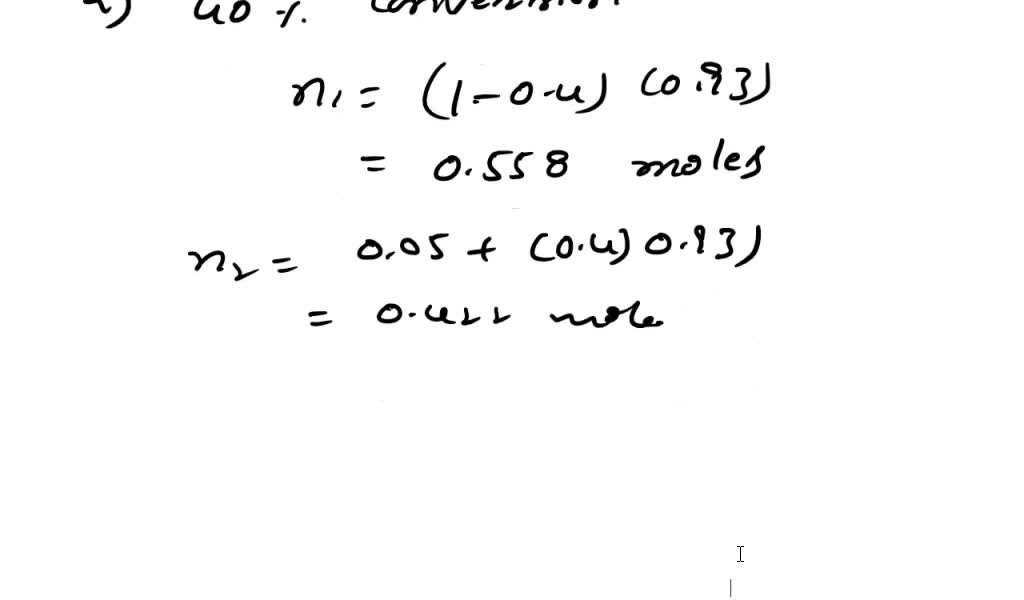 40 %. conversion
n1 = (1-0.4) (0.93)
= 0.558 moles
n2 = 0.05 + (0.4) 0.93)
= 0.422 mole